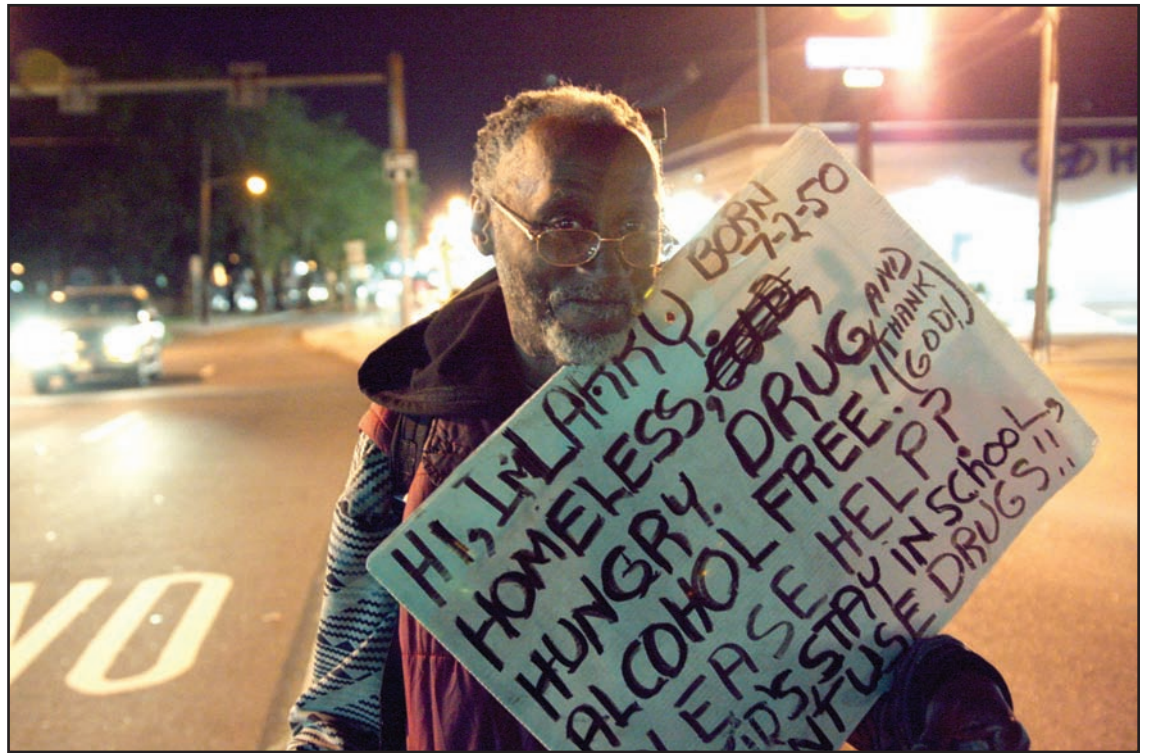 HI, I'M LARRY. BORN
7-2-50
HOMELESS,
HUNGRY. DRUG AND
ALCOHOL FREE! (THANK
GOD!)
LEASE HELP??
KID'S STAY IN SCHOOL,
N'T USE DRUGS!!
H